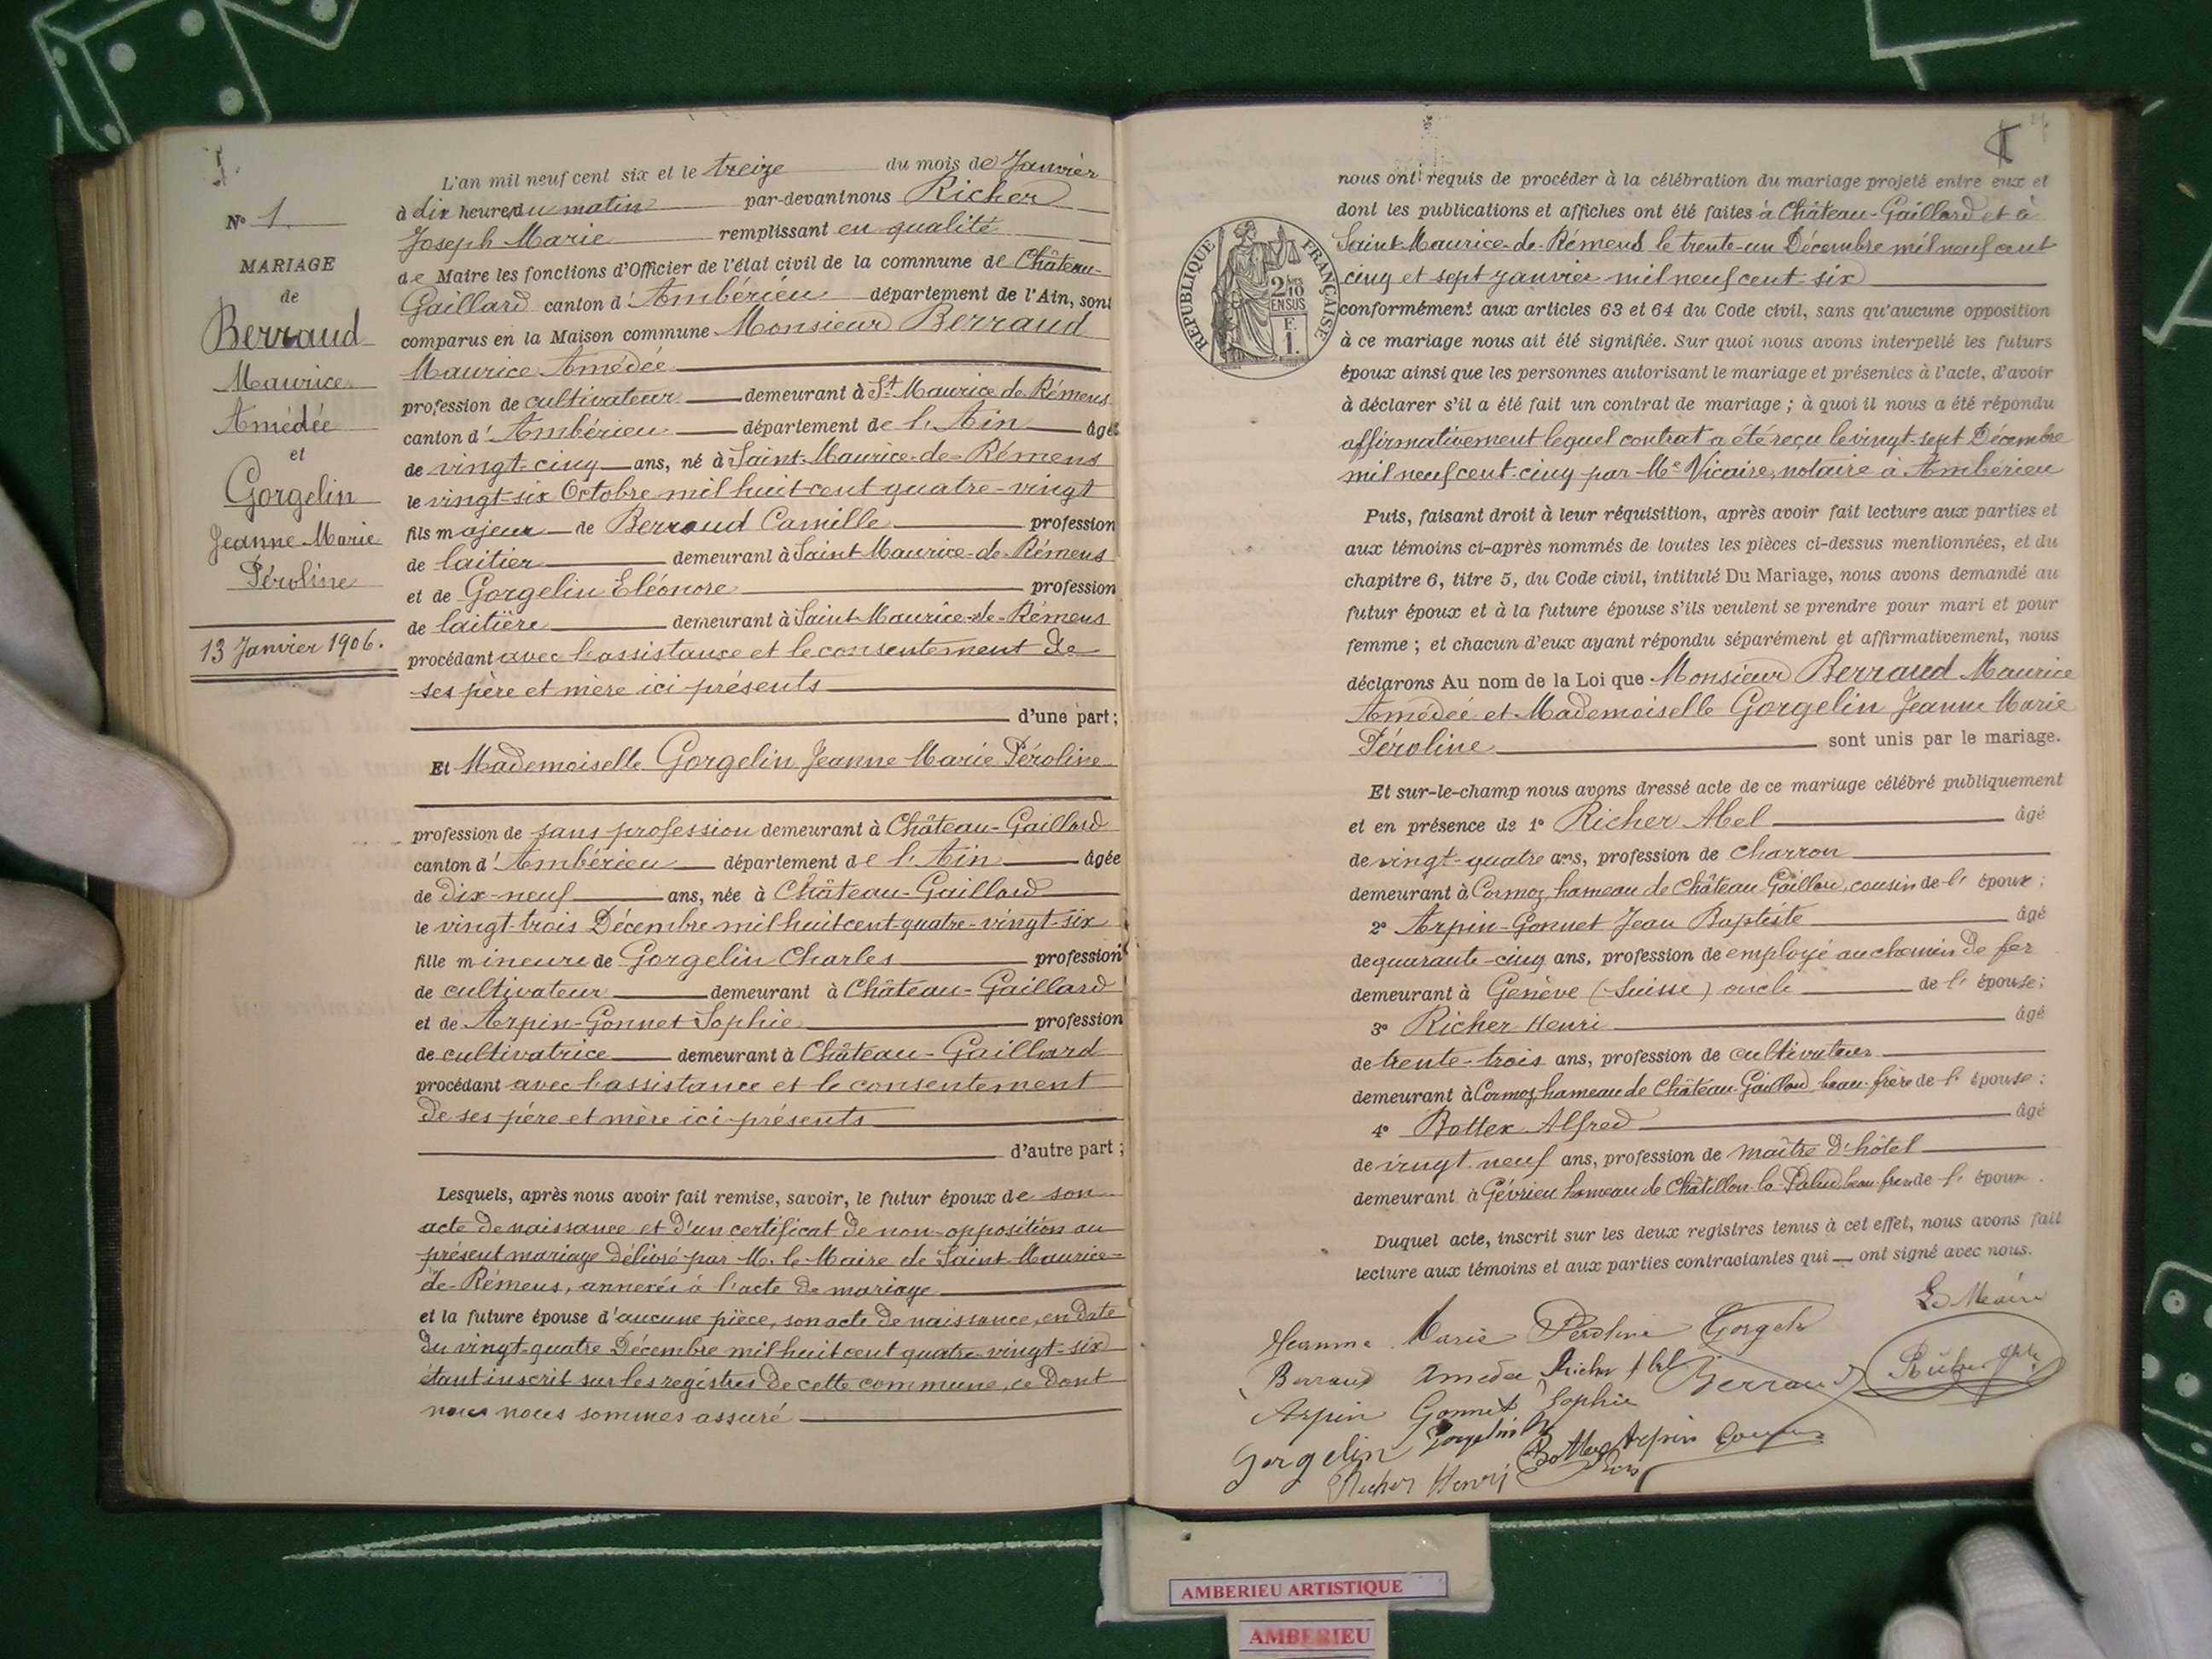 N° 1
MARIAGE
de
Berraud
Maurice
Amédée
et
Gorgelin
Jeanne Marie
Péroline
13 Janvier 1906.
L'an mil neuf cent six et le treize du mois de Janvier
à dix heures du matin par-devant nous Richer
Joseph Marie remplissant en qualité
de Maire les fonctions d'Officier de l'état civil de la commune de Château-
Gaillard canton d'Ambérieu département de l'Ain, sont
comparus en la Maison commune Monsieur Berraud
Maurice Amédée
profession de cultivateur demeurant à St Maurice de Rémens
canton d'Ambérieu département de l'Ain âgé
de vingt-cinq ans, né à Saint-Maurice-de-Rémens
le vingt-six Octobre mil huit cent quatre-vingt
fils majeur de Berraud Camille profession
de laitier demeurant à Saint-Maurice-de-Rémens
et de Gorgelin Eléonore profession
de laitière demeurant à Saint-Maurice-de-Rémens
procédant avec l'assistance et le consentement de
ses père et mère ici présents
d'une part;
Et Mademoiselle Gorgelin Jeanne Marie Péroline
profession de sans profession demeurant à Château-Gaillard
canton d'Ambérieu département de l'Ain âgée
de dix-neuf ans, née à Château-Gaillard
le vingt-trois Décembre mil huit cent quatre-vingt-six
fille mineure de Gorgelin Charles profession
de cultivateur demeurant à Château-Gaillard
et de Arpin-Gonnet Sophie profession
de cultivatrice demeurant à Château-Gaillard
procédant avec l'assistance et le consentement
de ses père et mère ici présents
d'autre part;
Lesquels, après nous avoir fait remise, savoir, le futur époux de son
acte de naissance et d'un certificat de non-opposition au
présent mariage délivré par M. le Maire de Saint Maurice-
de-Rémens, annexés à l'acte de mariage
et la future épouse d'aucune pièce, son acte de naissance, en date
du vingt-quatre Décembre mil huit cent quatre-vingt-six
étant inscrit sur les registres de cette commune, ce dont
nous nous sommes assuré
nous ont requis de procéder à la célébration du mariage projeté entre eux et
dont les publications et affiches ont été faites à Château-Gaillard et à
Saint-Maurice-de-Rémens le trente-un Décembre mil neuf cent
cinq et sept janvier mil neuf cent-six
RÉPUBLIQUE FRANÇAISE
2/10
EN SUS
F.
1.
conformément aux articles 63 et 64 du Code civil, sans qu'aucune opposition
à ce mariage nous ait été signifiée. Sur quoi nous avons interpellé les futurs
époux ainsi que les personnes autorisant le mariage et présentes à l'acte, d'avoir
à déclarer s'il a été fait un contrat de mariage ; à quoi il nous a été répondu
affirmativement lequel contrat a été reçu le vingt-sept Décembre
mil neuf cent-cinq par Me Vicaire, notaire à Ambérieu
Puis, faisant droit à leur réquisition, après avoir fait lecture aux parties et
aux témoins ci-après nommés de toutes les pièces ci-dessus mentionnées, et du
chapitre 6, titre 5, du Code civil, intitulé Du Mariage, nous avons demandé au
futur époux et à la future épouse s'ils veulent se prendre pour mari et pour
femme ; et chacun d'eux ayant répondu séparément et affirmativement, nous
déclarons Au nom de la Loi que Monsieur Berraud Maurice
Amédeé et Mademoiselle Gorgelin Jeanne Marie
Péroline sont unis par le mariage.
Et sur-le-champ nous avons dressé acte de ce mariage célébré publiquement
et en présence de 1° Richer Abel âgé
de vingt-quatre ans, profession de charron
demeurant à Cormoz hameau de Château Gaillard, cousin de l'époux;
2° Arpin-Gonnet Jean Baptiste âgé
de quarante-cinq ans, profession de employé au chemin de fer
demeurant à Genève (Suisse) oncle de l'épouse;
3° Richer Henri âgé
de trente-trois ans, profession de cultivateur
demeurant à Cormoz hameau de Château-Gaillard beau-frère de l'épouse;
4° Bottex Alfred âgé
de vingt-neuf ans, profession de maître d'hôtel
demeurant à Gévrieu hameau de Châtillon-la-Palud beau-frère de l'époux.
Duquel acte, inscrit sur les deux registres tenus à cet effet, nous avons fait
lecture aux témoins et aux parties contractantes qui ont signé avec nous.
Le Maire
Jeanne Marie Péroline Gorgelin
Berraud Amédée Richer Abel Berraud
Arpin Gonnet Sophie
Gorgelin Gorgelin
Bottex Arpin Gonnet
Richer Henri
AMBERIEU ARTISTIQUE
AMBERIEU